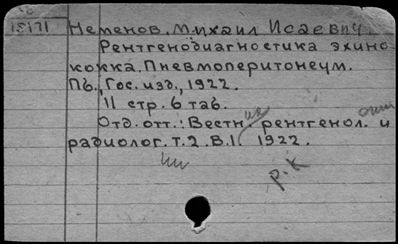 15171 Неменов, Михаил Исаевич.
Рентгенодиагностика эхино-
кокка. Пневмоперитонеум.
Пб., Гос. изд., 1922.
11 стр. 6 таб.
Отд. отт.: Вестн. рентгенол. и
радиолог. т. 2. В. 1. 1922.
р. к